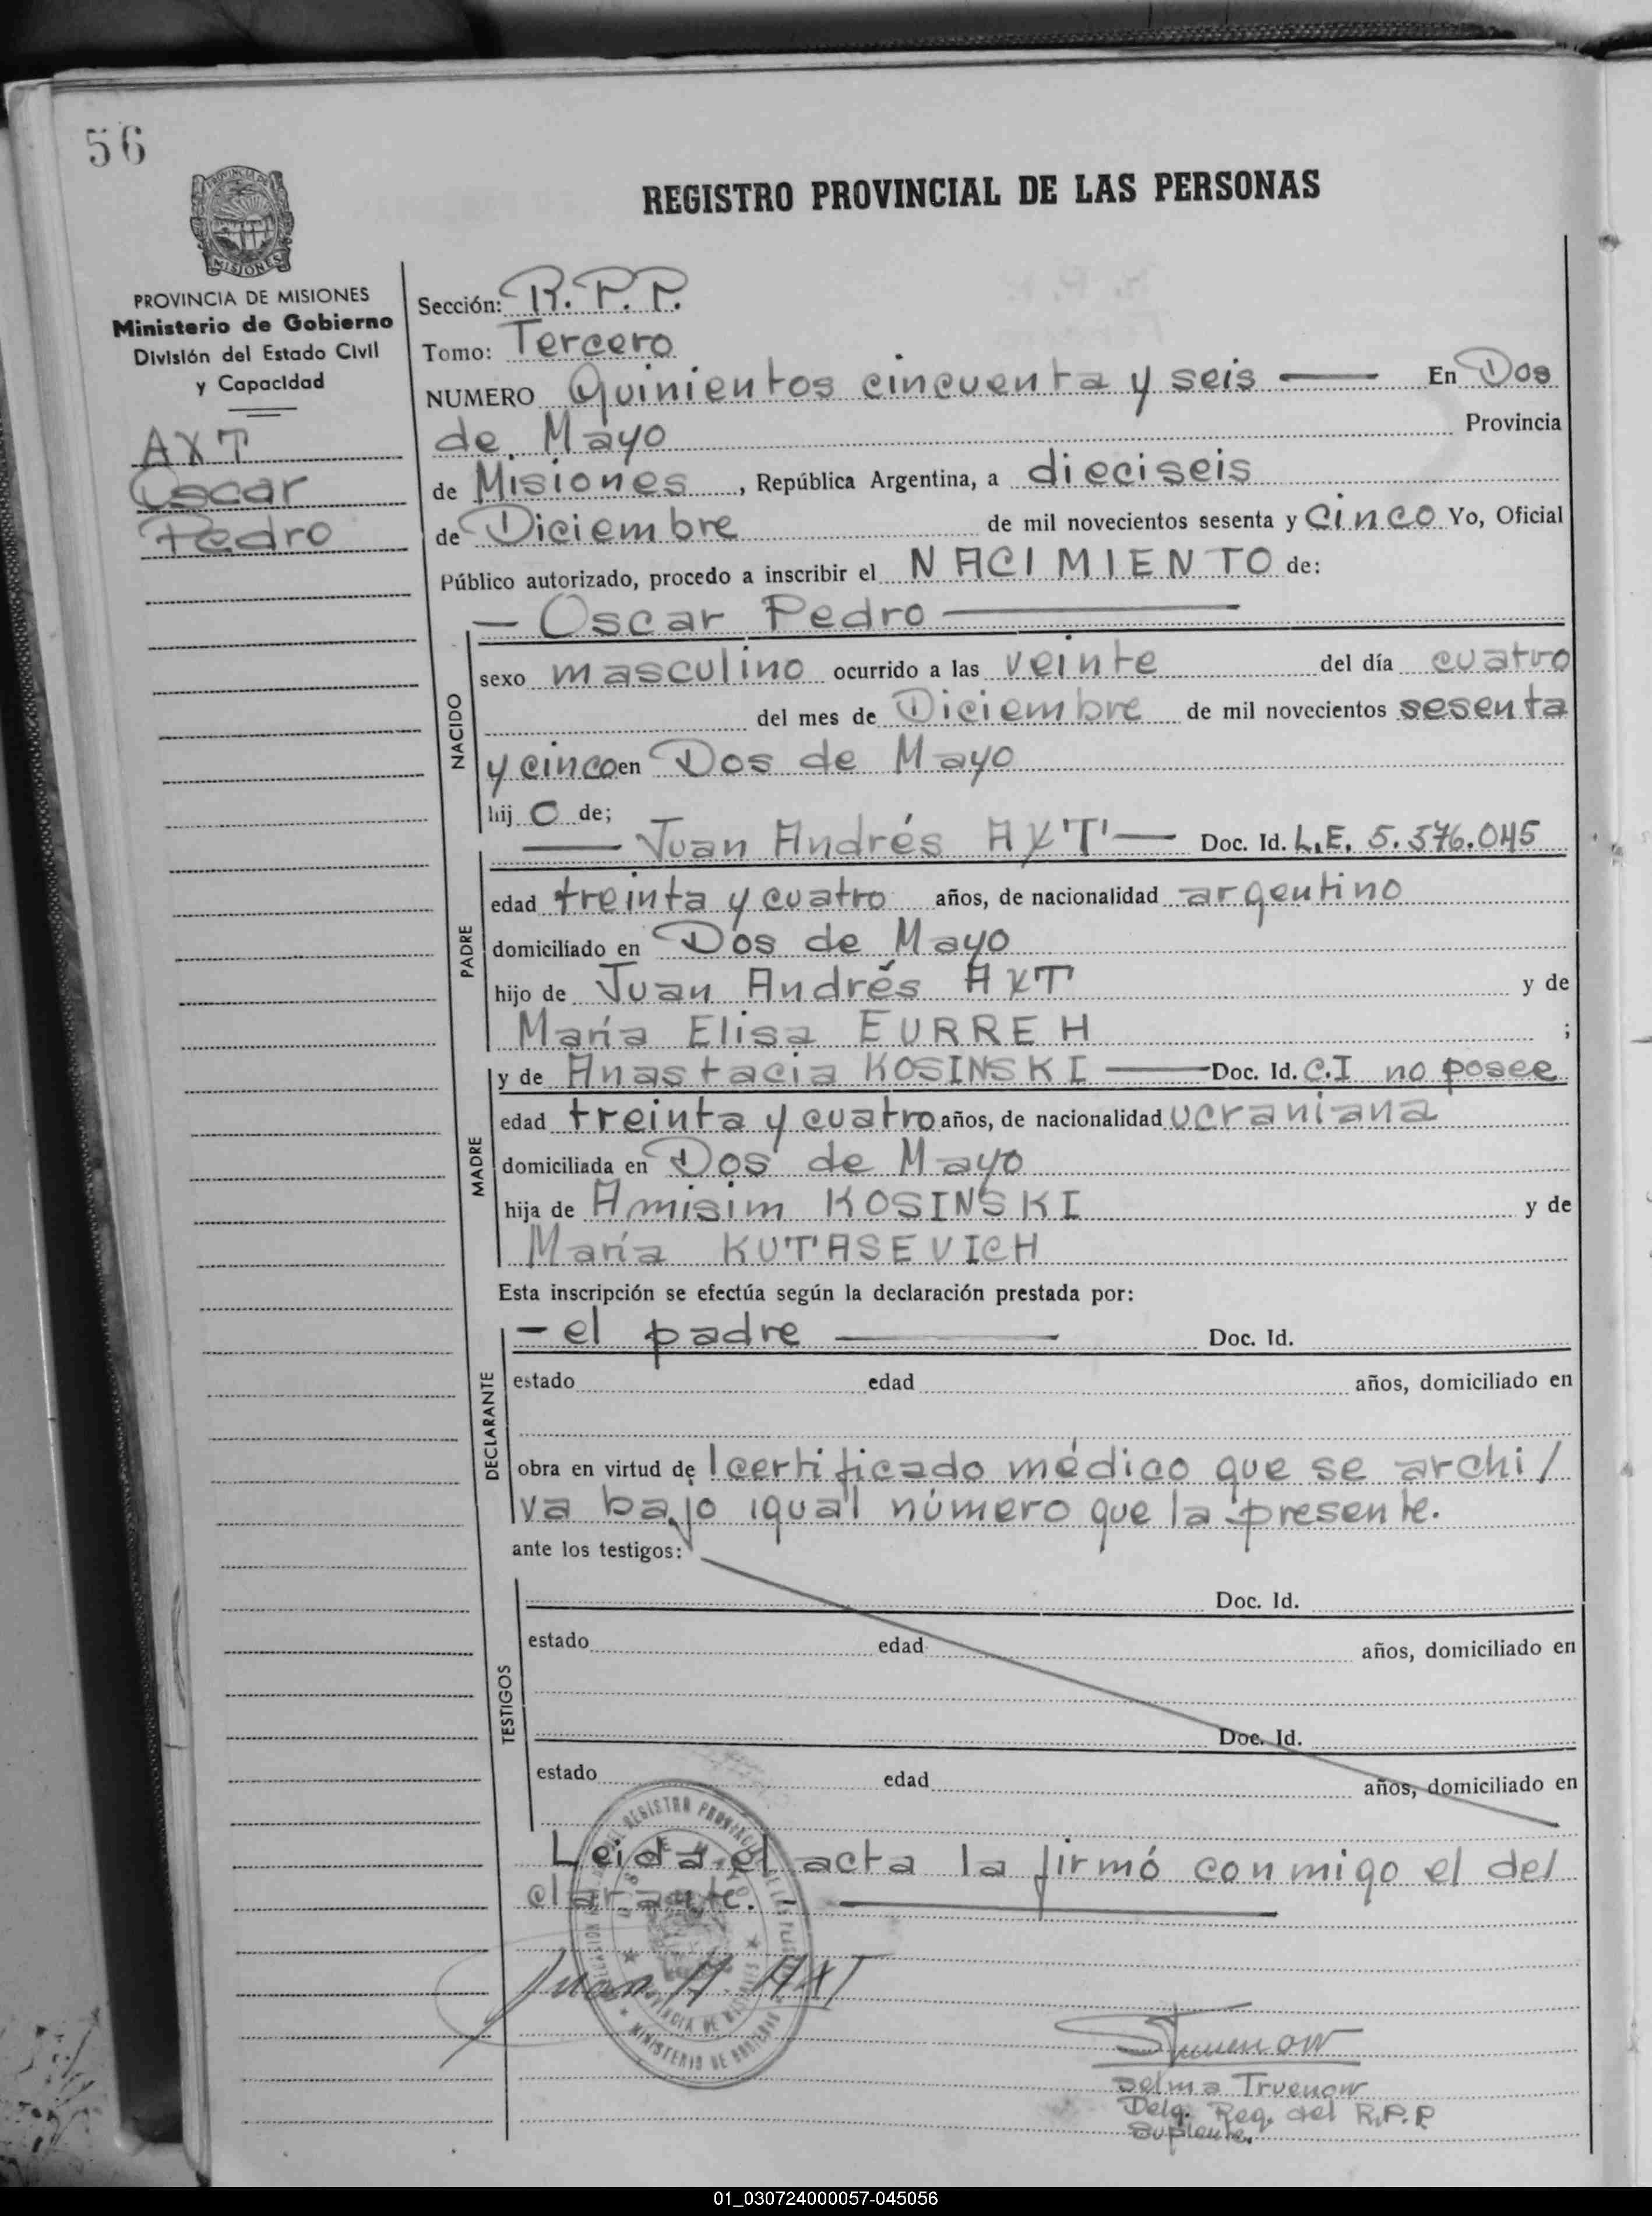 56
PROVINCIA DE MISIONES
REGISTRO PROVINCIAL DE LAS PERSONAS
PROVINCIA DE MISIONES
Ministerio de Gobierno
División del Estado Civil
y Capacidad
AXT
Oscar
Pedro
Sección: R.P.P.
Tomo: Tercero
NUMERO Quinientos cincuenta y seis — En Dos
de Mayo Provincia
de Misiones, República Argentina, a dieciseis
de Diciembre de mil novecientos sesenta y cinco Yo, Oficial
Público autorizado, procedo a inscribir el NACIMIENTO de:
— Oscar Pedro —
NACIDO
sexo masculino ocurrido a las veinte del día cuatro
del mes de Diciembre de mil novecientos sesenta
y cinco en Dos de Mayo
hijo de;
PADRE
— Juan Andrés AXT — Doc. Id. L.E. 5.576.045
edad treinta y cuatro años, de nacionalidad argentino
domiciliado en Dos de Mayo
hijo de Juan Andrés AXT y de
María Elisa EURREH ;
MADRE
y de Anastacia KOSINSKI — Doc. Id. C.I no posee
edad treinta y cuatro años, de nacionalidad ucraniana
domiciliada en Dos de Mayo
hija de Amisim KOSINSKI y de
María KUTASEVICH
Esta inscripción se efectúa según la declaración prestada por:
DECLARANTE
- el padre — Doc. Id.
estado edad años, domiciliado en
obra en virtud de l certificado médico que se archi/
va bajo igual número que la presente.
ante los testigos:
TESTIGOS
Doc. Id.
estado edad años, domiciliado en
Doc. Id.
estado edad años, domiciliado en
Leida el acta la firmó conmigo el del
clarante. —
REGISTRO PROVINCIAL DE LAS
PROVINCIA DE MISIONES
MINISTERIO DE GOBIERNO
Juan A. AXT
Truenow
Selma Truenow
Delg. Reg. del R.P.P
Suplente.
01_030724000057-045056